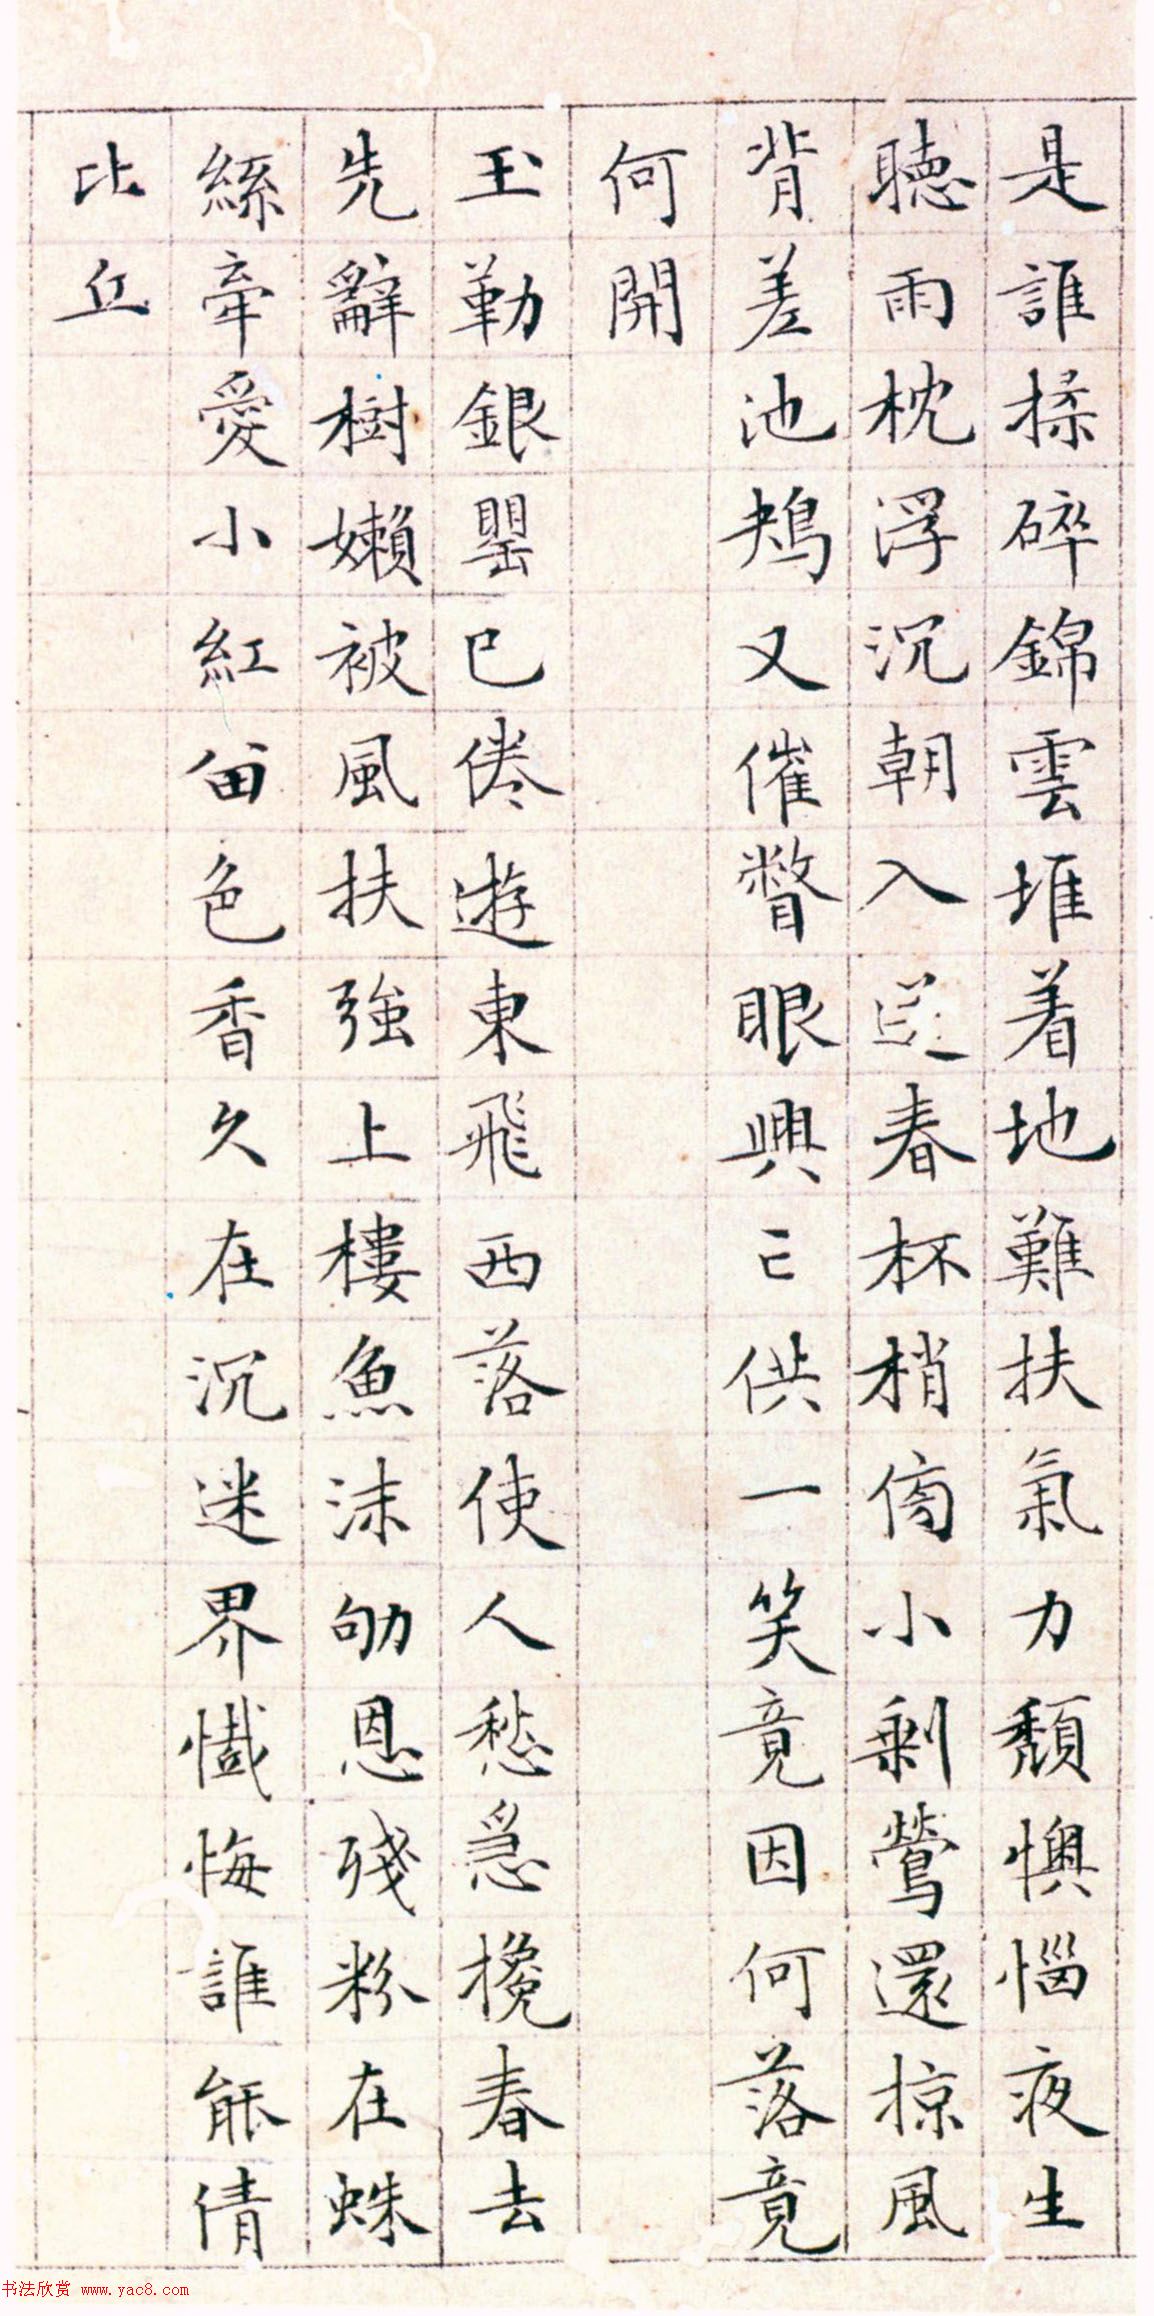 是誰揉碎錦雲堆着地難扶氣力頽懊惱夜生
聽雨枕浮沉朝入送春杯梢傍小剩鶯還掠風
背差池鴂又催瞥眼興亡供一笑竟因何落竟
何開
玉勒銀罌已倦遊東飛西落使人愁急攙春去
先辭樹嬾被風扶強上樓魚沫劬恩殘粉在蛛
絲牽愛小紅留色香久在沉迷界懺悔誰能倩
比丘
书法欣赏 www.yac8.com